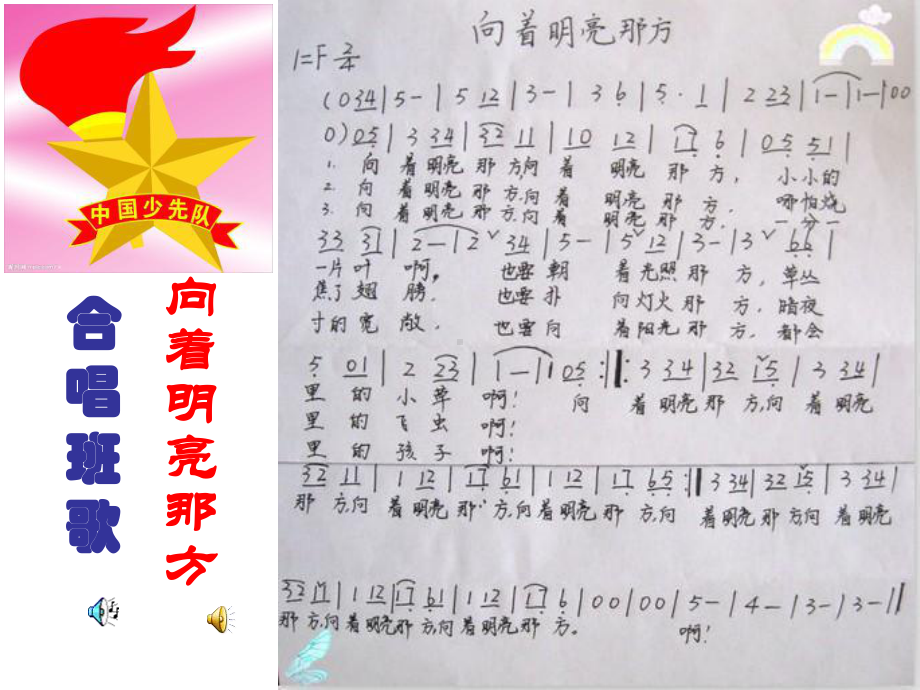 中国少先队
合唱班歌
向着明亮那方
向着明亮那方
1=F 2/4
(0 34 | 5 - | 5 12 | 3 - | 3 6 | 5 · 1 | 2 23 | 1 - | 1 - | 00
0) 05 | 3 34 | 32 11 | 10 12 | 17 6 | 05 51 |
1. 向 着明亮 那 方向 着 明亮 那 方， 小小的
2. 向 着明亮 那 方，向 着 明亮 那 方， 哪怕烧
3. 向 着明亮 那 方，向 着 明亮 那 方， 一分一
33 31 | 2 - | 2 ˅ 34 | 5 - | 5 ˅ 12 | 3 - | 3 ˅ 66 |
一片 叶 啊， 也要 朝 着光照 那 方， 草丛
焦了 翅 膀， 也要 扑 向灯火 那 方， 暗夜
寸的 宽 敞， 也要 向 着阳光 那 方， 都会
5 01 | 2 23 | 1 - | 1 05 :||: 3 34 | 32 ˅15 | 3 34 |
里 的 小 草 啊！ 向 着明亮 那 方，向 着明亮
里 的 飞 虫 啊！
里 的 孩 子 啊！
32 11 | 1 12 | 17 61 | 1 12 | 17 65 :|| 3 34 | 32 ˅15 | 3 34 |
那 方，向 着明亮 那 方，向 着明亮 那 方，向 着明亮 那 方向 着明亮
32 ˅11 | 1 12 | 17 61 | 1 12 | 17 6 | 00 | 00 | 5 - | 4 - | 3 - | 3 - ||
那 方，向 着明亮 那 方，向 着明亮 那 方。 啊！